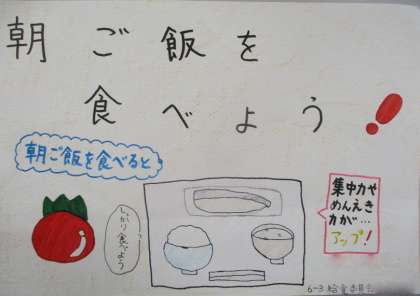 朝ご飯を
食べよう!
朝ご飯を食べると
しっかり食べよう
集中力や
めんえき
力が…
アップ!
6-3 給食委員会